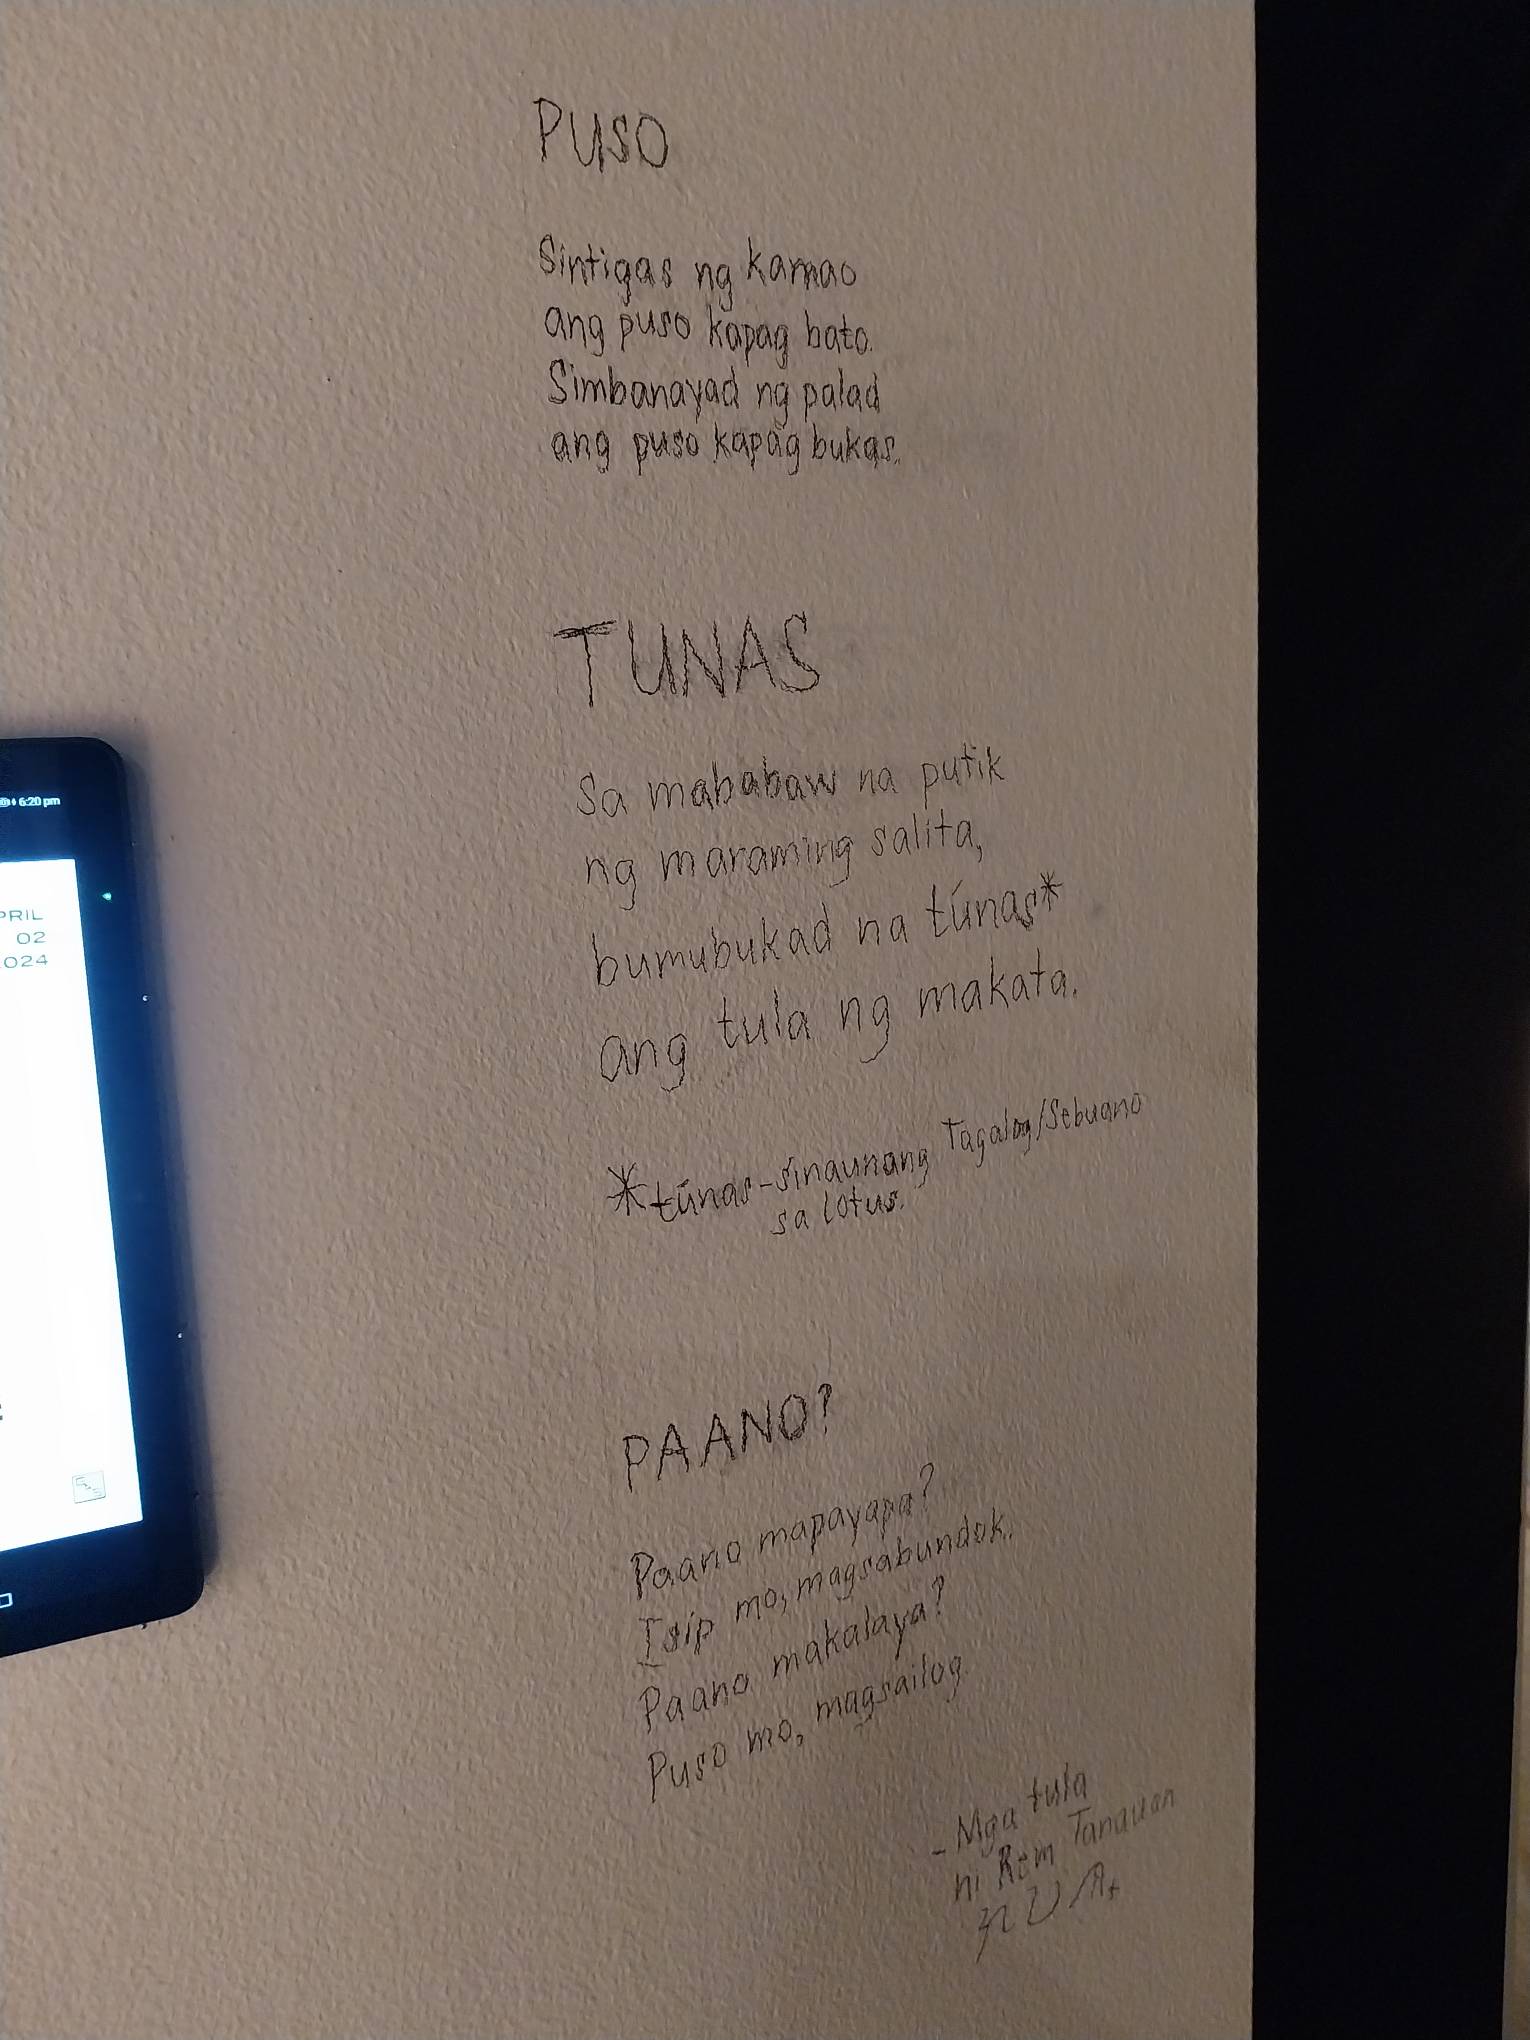 PUSO
Sintigas ng kamao
ang puso kapag bato.
Simbanayad ng palad
ang puso kapag bukas.
TUNAS
Sa mababaw na putik
ng maraming salita,
bumubukad na túnas*
ang tula ng makata.
*túnas - sinaunang Tagalog/Sebuano
sa lotus.
PAANO?
Paano mapayapa?
Isip mo, magsabundok.
Paano makalaya?
Puso mo, magsailog.
- Mga tula
ni Rem Tanauan
6:20 pm
PRIL
02
024